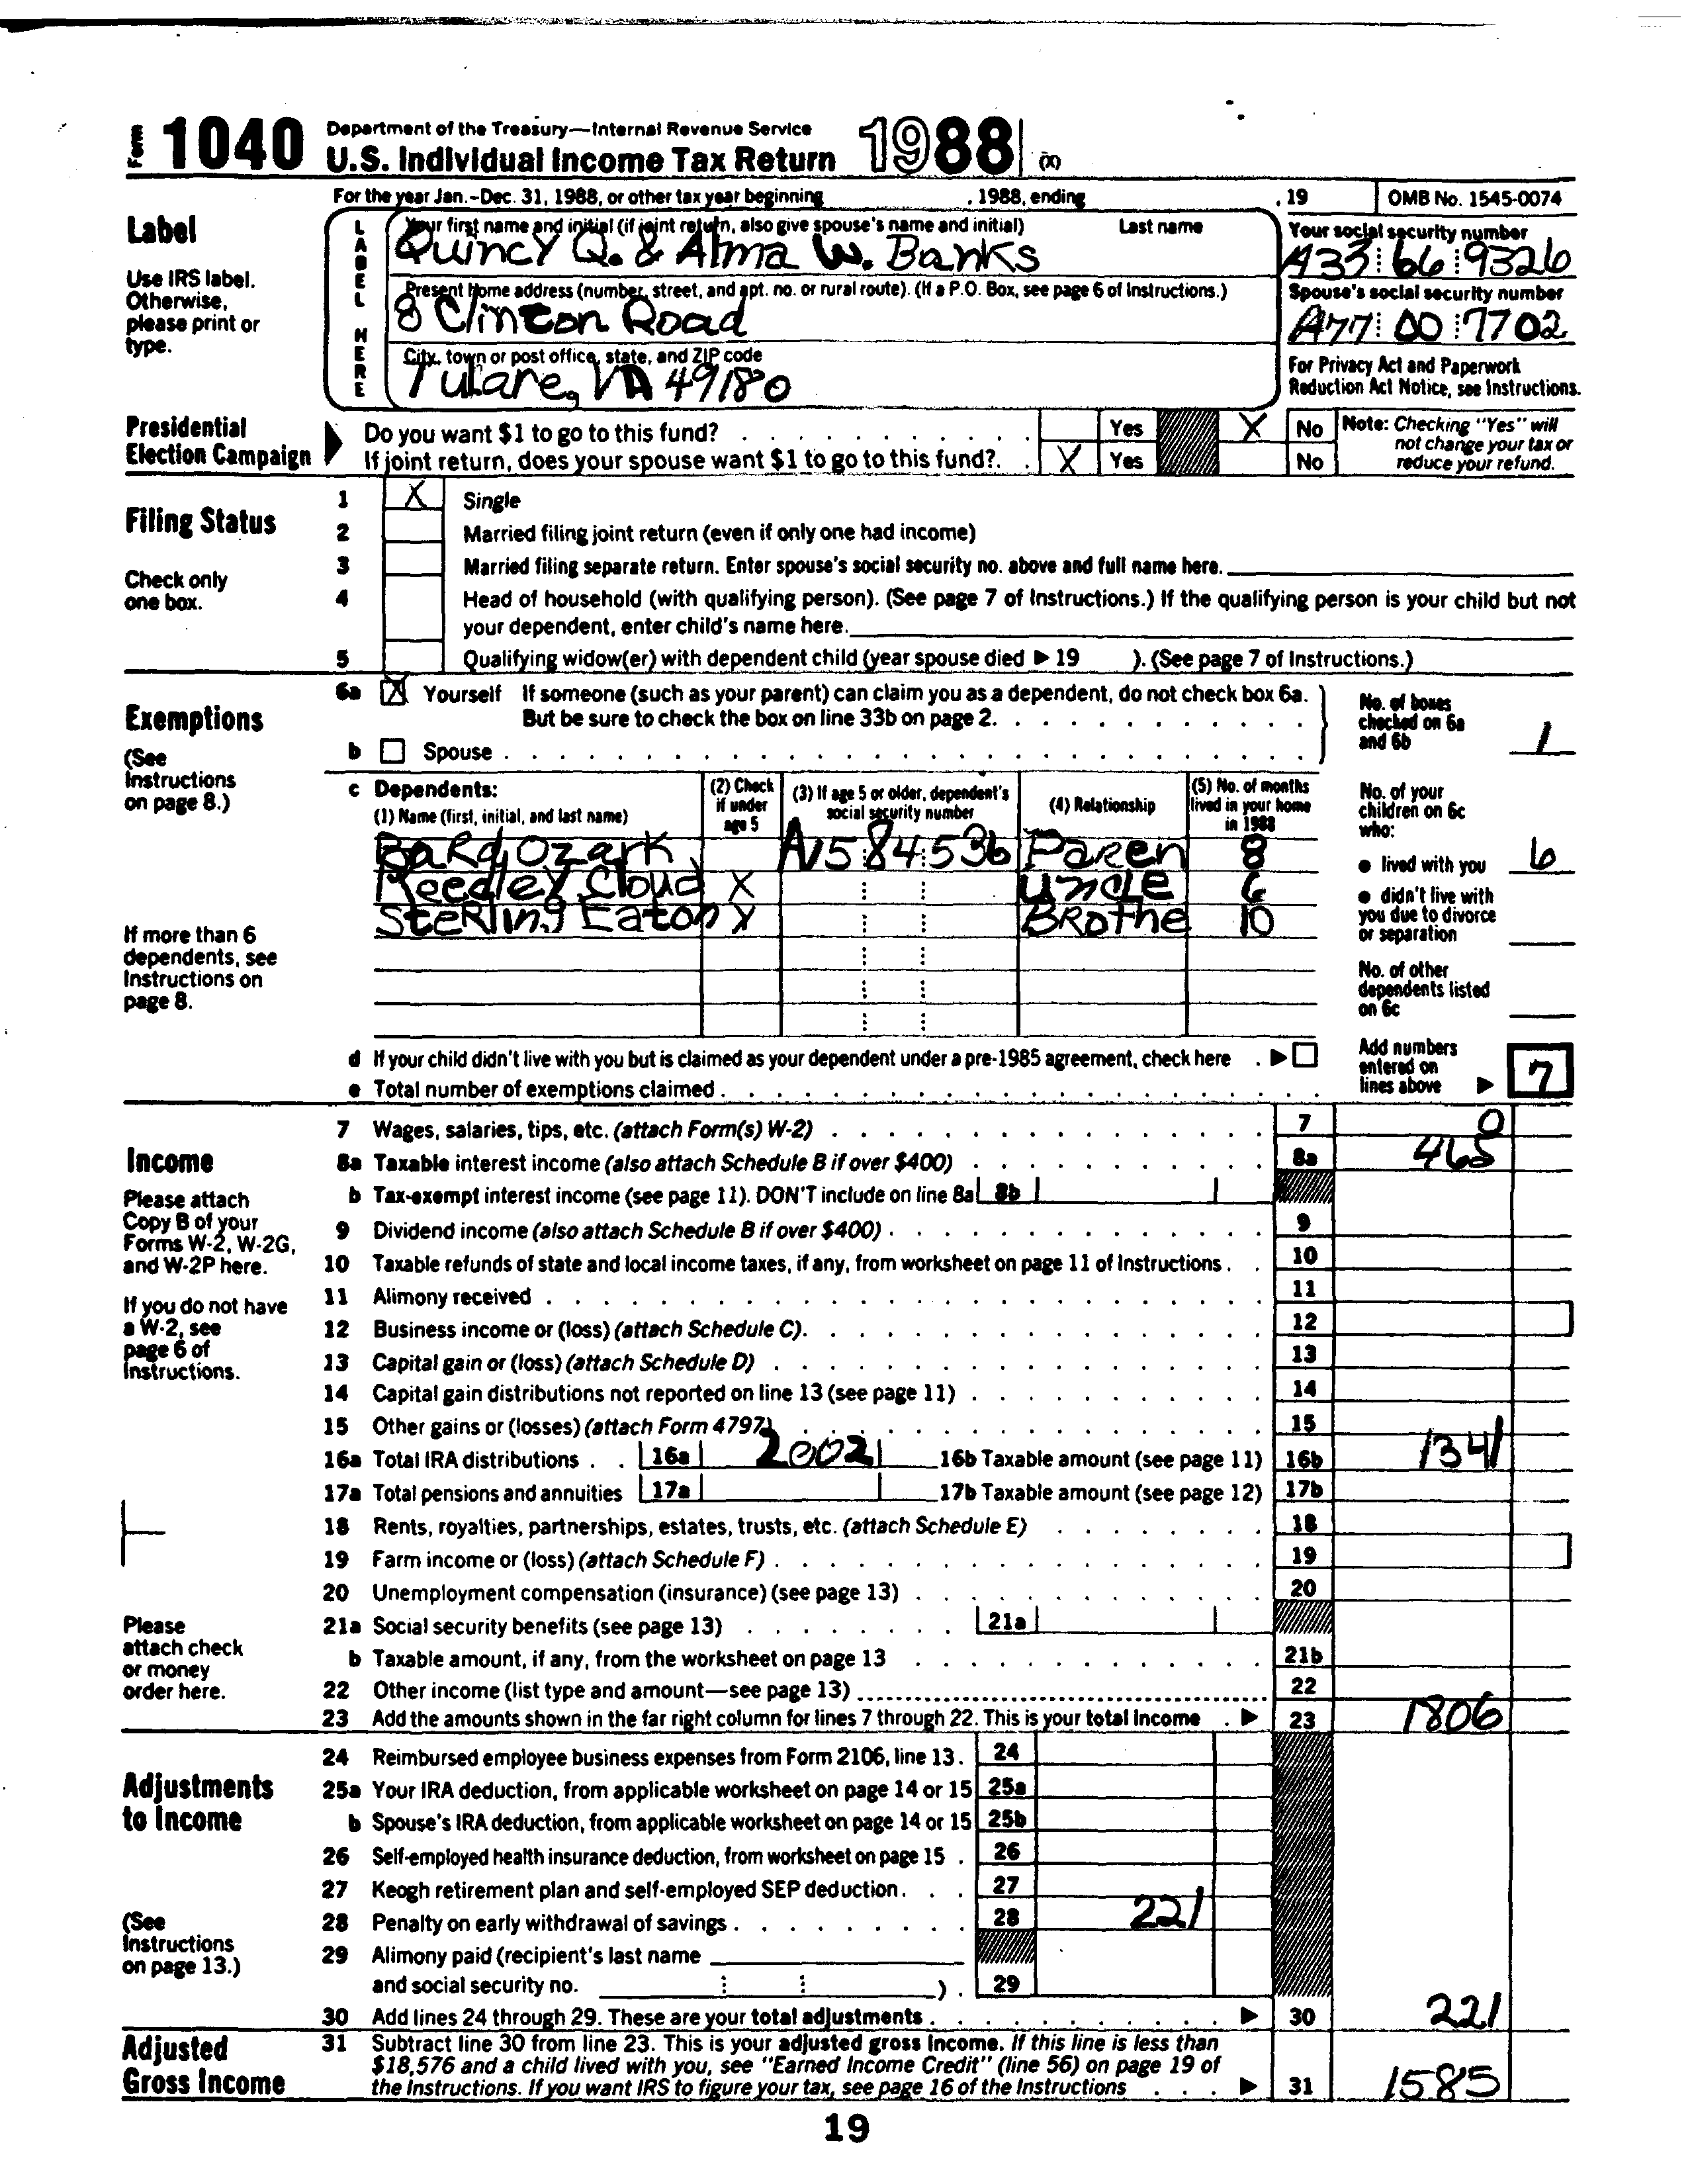 Form 1040 Department of the Treasury—Internal Revenue Service
U.S. Individual Income Tax Return 1988 (X)
For the year Jan.-Dec. 31, 1988, or other tax year beginning , 1988, ending , 19 OMB No. 1545-0074
Label
Use IRS label. Otherwise, please print or type.
LABEL HERE
Your first name and initial (if joint return, also give spouse's name and initial) Last name
Quincy Q. & Alma W. Banks
Your social security number
A33 66 9326
Present home address (number, street, and apt. no. or rural route). (If a P.O. Box, see page 6 of Instructions.)
8 Clinton Road
Spouse's social security number
A77 00 7702
City, town or post office, state, and ZIP code
Tulare, VA 49180
For Privacy Act and Paperwork Reduction Act Notice, see Instructions.
Presidential Election Campaign
Do you want $1 to go to this fund? Yes X No
If joint return, does your spouse want $1 to go to this fund? X Yes No
Note: Checking "Yes" will not change your tax or reduce your refund.
Filing Status
Check only one box.
1 X Single
2 Married filing joint return (even if only one had income)
3 Married filing separate return. Enter spouse's social security no. above and full name here.
4 Head of household (with qualifying person). (See page 7 of Instructions.) If the qualifying person is your child but not
your dependent, enter child's name here.
5 Qualifying widow(er) with dependent child (year spouse died ▶ 19 ). (See page 7 of Instructions.)
Exemptions
(See Instructions on page 8.)
6a X Yourself If someone (such as your parent) can claim you as a dependent, do not check box 6a.
But be sure to check the box on line 33b on page 2.
b Spouse
No. of boxes checked on 6a and 6b 1
c Dependents:
(1) Name (first, initial, and last name) (2) Check if under age 5 (3) If age 5 or older, dependent's social security number (4) Relationship (5) No. of months lived in your home in 1988
Bard Ozark A15 84 536 Paren 8
Reedley Cloud X Uncle 6
Sterling Eaton X Brothe 10
No. of your children on 6c who:
● lived with you 6
● didn't live with you due to divorce or separation
No. of other dependents listed on 6c
If more than 6 dependents, see Instructions on page 8.
d If your child didn't live with you but is claimed as your dependent under a pre-1985 agreement, check here ▶
e Total number of exemptions claimed
Add numbers entered on lines above ▶ 7
Income
Please attach Copy B of your Forms W-2, W-2G, and W-2P here.
If you do not have a W-2, see page 6 of Instructions.
Please attach check or money order here.
7 Wages, salaries, tips, etc. (attach Form(s) W-2) 7 0
8a Taxable interest income (also attach Schedule B if over $400) 8a 465
b Tax-exempt interest income (see page 11). DON'T include on line 8a 8b
9 Dividend income (also attach Schedule B if over $400) 9
10 Taxable refunds of state and local income taxes, if any, from worksheet on page 11 of Instructions 10
11 Alimony received 11
12 Business income or (loss) (attach Schedule C) 12
13 Capital gain or (loss) (attach Schedule D) 13
14 Capital gain distributions not reported on line 13 (see page 11) 14
15 Other gains or (losses) (attach Form 4797) 15
16a Total IRA distributions 16a 2002 16b Taxable amount (see page 11) 16b 1341
17a Total pensions and annuities 17a 17b Taxable amount (see page 12) 17b
18 Rents, royalties, partnerships, estates, trusts, etc. (attach Schedule E) 18
19 Farm income or (loss) (attach Schedule F) 19
20 Unemployment compensation (insurance) (see page 13) 20
21a Social security benefits (see page 13) 21a
b Taxable amount, if any, from the worksheet on page 13 21b
22 Other income (list type and amount—see page 13) 22
23 Add the amounts shown in the far right column for lines 7 through 22. This is your total income ▶ 23 1806
Adjustments to Income
(See Instructions on page 13.)
24 Reimbursed employee business expenses from Form 2106, line 13. 24
25a Your IRA deduction, from applicable worksheet on page 14 or 15 25a
b Spouse's IRA deduction, from applicable worksheet on page 14 or 15 25b
26 Self-employed health insurance deduction, from worksheet on page 15 26
27 Keogh retirement plan and self-employed SEP deduction 27
28 Penalty on early withdrawal of savings 28 221
29 Alimony paid (recipient's last name
and social security no. ) 29
30 Add lines 24 through 29. These are your total adjustments ▶ 30 221
Adjusted Gross Income
31 Subtract line 30 from line 23. This is your adjusted gross income. If this line is less than
$18,576 and a child lived with you, see "Earned Income Credit" (line 56) on page 19 of
the Instructions. If you want IRS to figure your tax, see page 16 of the Instructions ▶ 31 1585
19